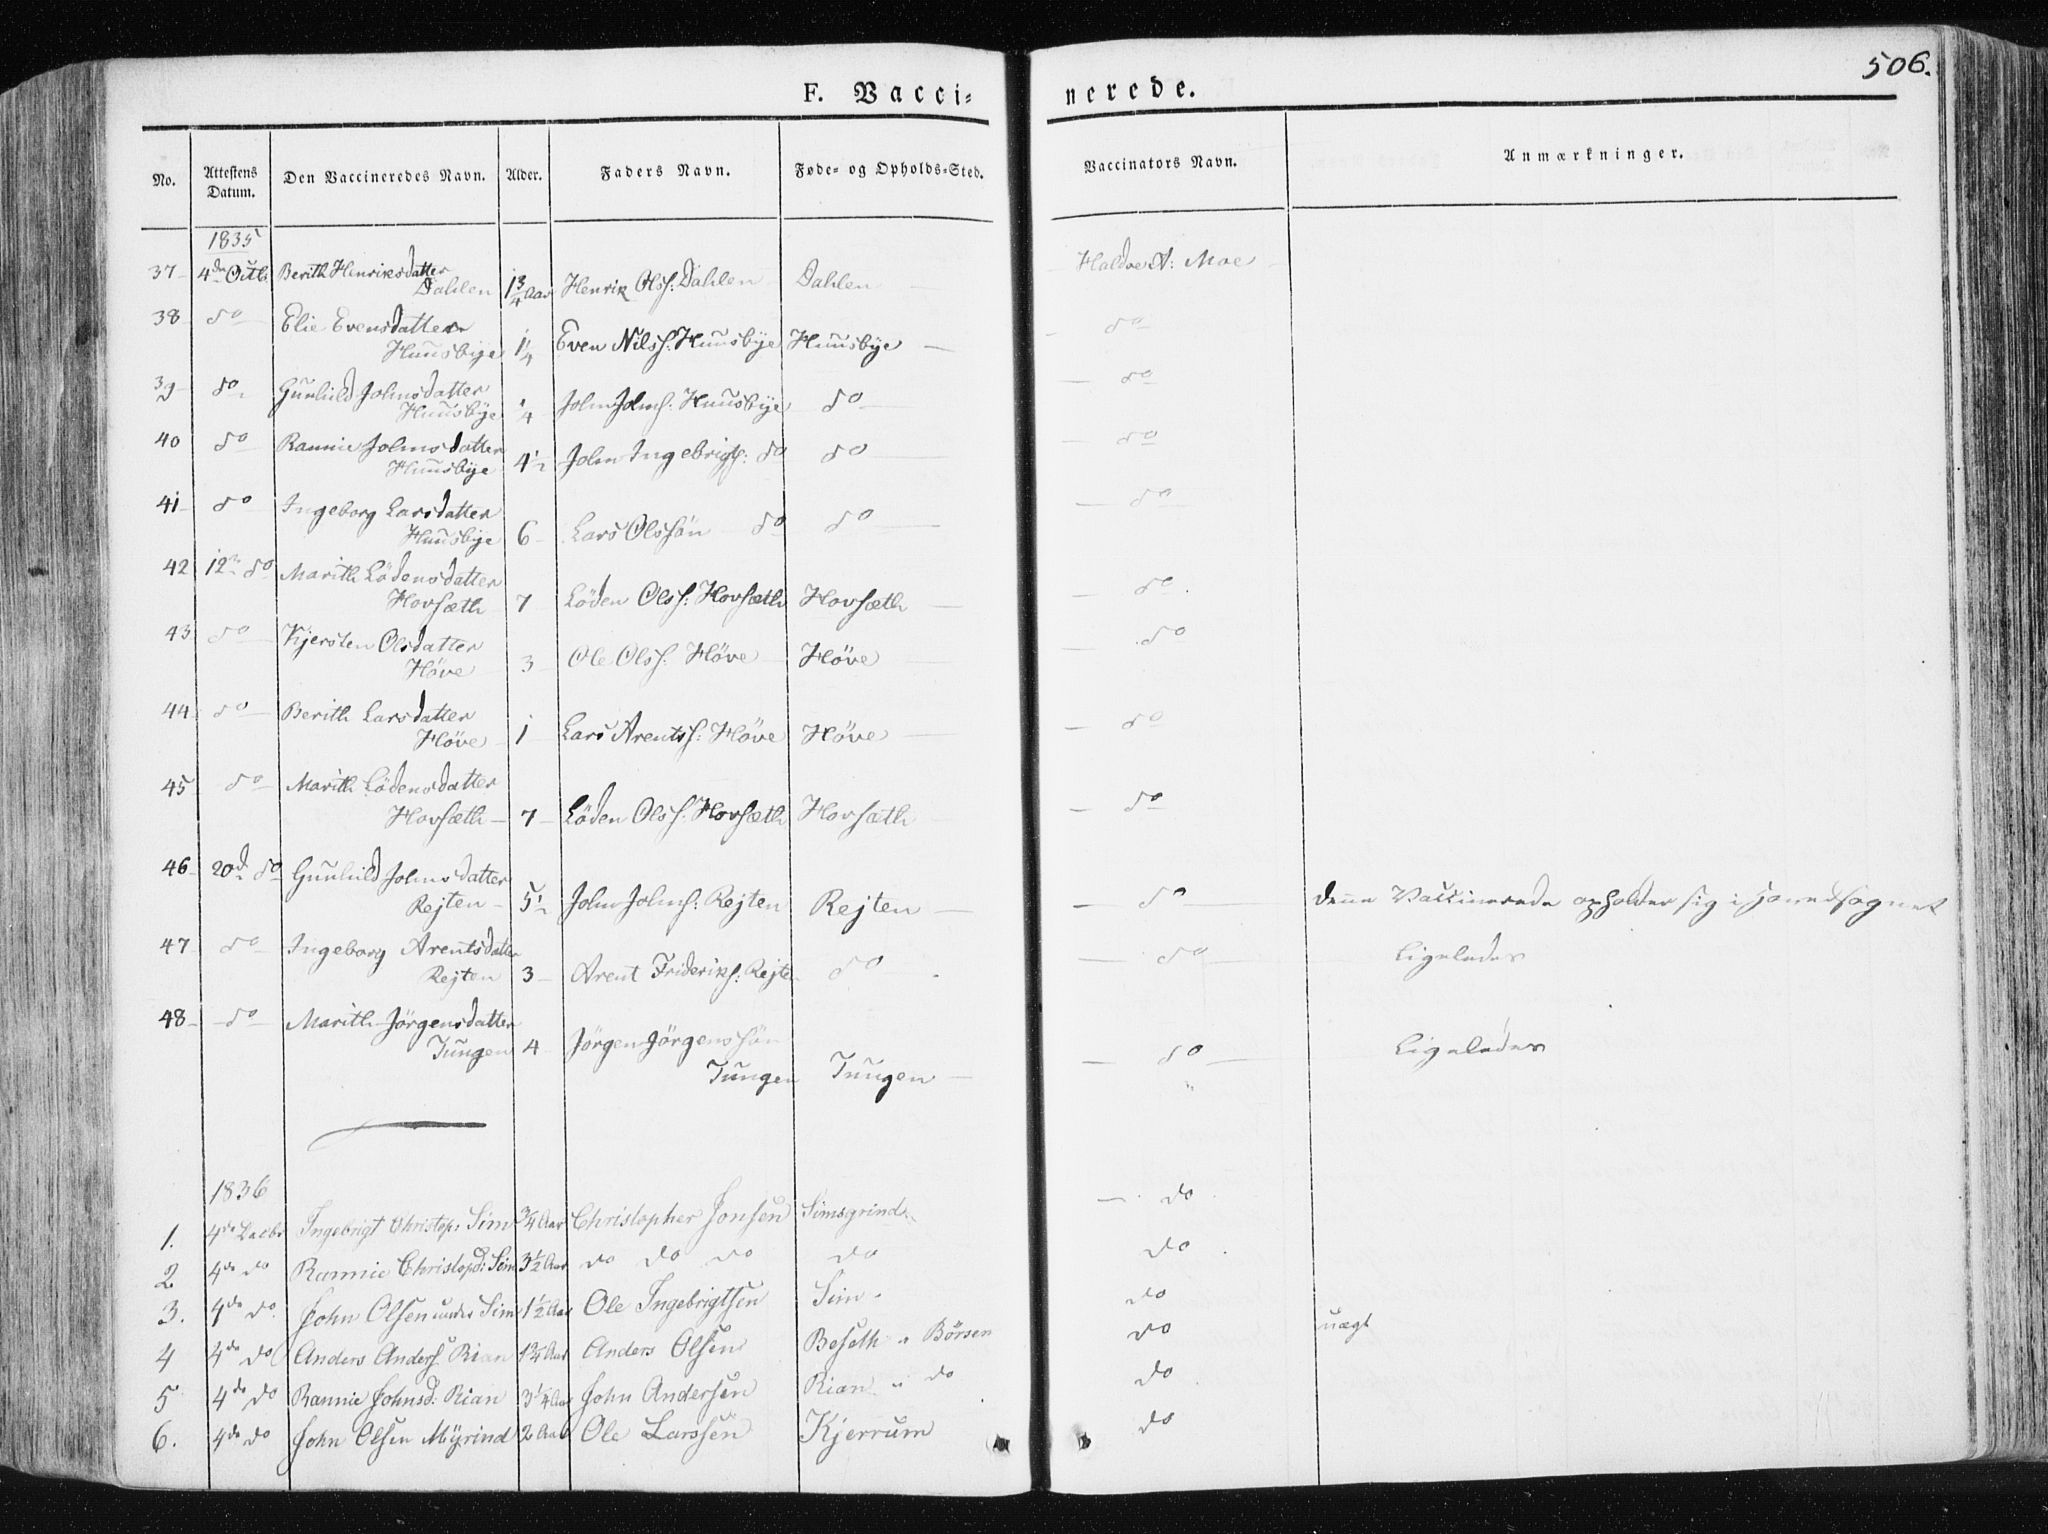 506.
F. Vacci= nerede.
No. Attestens Datum. Den Vaccineredes Navn. Alder. Faders Navn. Føde= og Opholds=Sted. Vaccinators Navn. Anmærkninger.
1835
37 4de Octb. Berith Henriksdatter Dahlen 1 3/4 Aar Henrik Olss: Dahlen Dahlen — Haldoe A: Moe
38 do Elie Evensdatter Huusbye 1 1/4 Even Nilss: Huusbye Huusbye — do
39 do Gunhild Johnsdatter Huusbye 1/4 John Johns: Huusbye do — do
40 do Rannie Johnsdatter Huusbye 4 1/2 John Ingebrigts: do do — do
41 do Ingeborg Larsdatter Huusbye 6 Lars Olssøn do do — do
42 12te do Marith Lödensdatter Hovsæth 7 Löden Olss: Hovsæth Hovsæth — do
43 do Kjersten Olsdatter Höve 3 Ole Olss: Höve Höve — do
44 do Berith Larsdatter Höve 1 Lars Arentss: Höve Höve — do
45 do Marith Lödensdatter Hovsæth 7 Löden Olss: Hovsæth Hovsæth — do
46 20d do Gunhild Johnsdatter Rejten 5 1/2 John Johns: Rejten Rejten — do denne Vaccinerede opholder sig i Hovedsognet
47 do Ingeborg Arentsdatter Rejten 3 Arent Frideriks: Rejten do — do Ligeledes
48 do Marith Jörgensdatter Tungen 4 Jörgen Jörgenssön Tungen Tungen — do Ligeledes
1836
1. 4de Ingebrigt Christop: Sim 3/4 Aar Christopher Jonsen Simsgrind — do
2 4de do Rannie Christopd: Sim 3 1/2 Aar do do do do do
3. 4de do. John Olsen under Sim 1 1/2 Aar Ole Ingebrigtsen Sim do
4 4de do Anders Anders: Rian 1 3/4 Aar Anders Olsen Beseth i Börsen do uægt
5 4de do Rannie Johnsd: Rian 3 1/4 Aar John Andersen Rian i do do
6. 4de do John Olsen Myrind 2 Aar Ole Larssen Kjerrum do